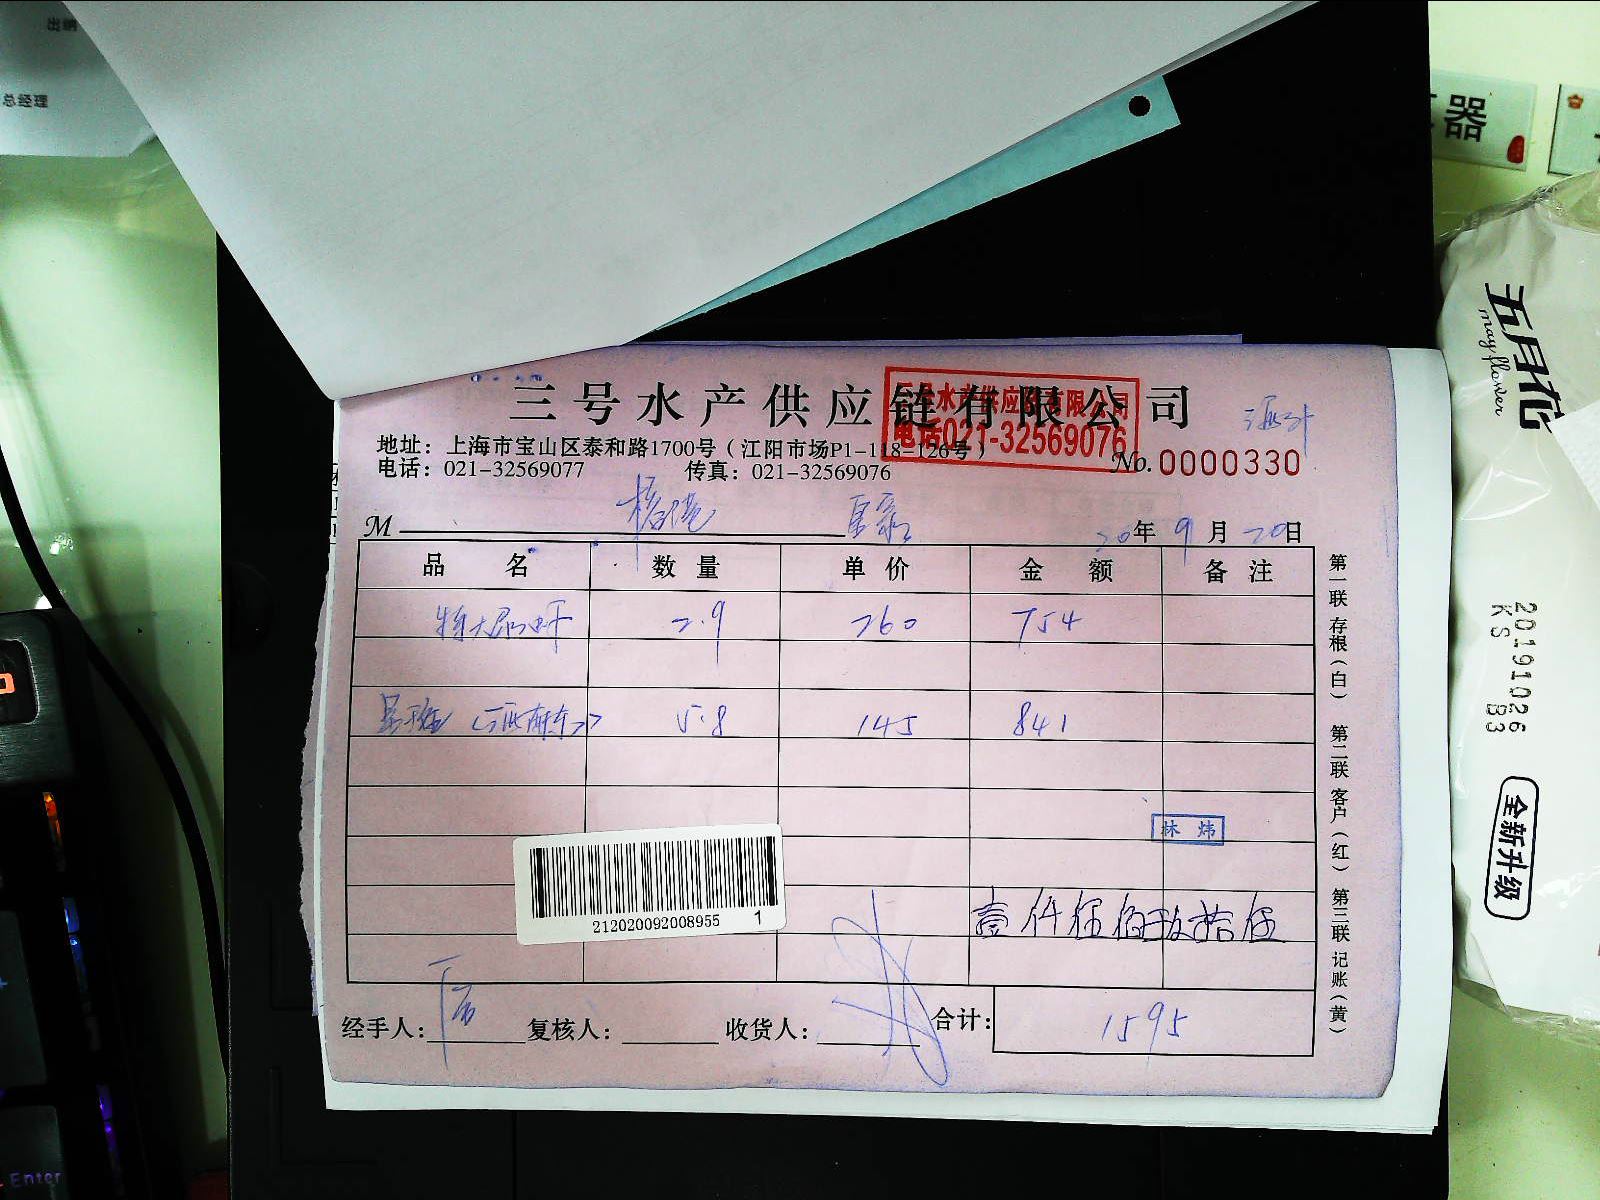 出纳
总经理
器
三号水产供应链有限公司
三号水产供应链有限公司
电话021-32569076
地址：上海市宝山区泰和路1700号（江阳市场P1-118-126号）
电话：021-32569077 传真：021-32569076
No. 0000330
M
20年9月20日
品名 数量 单价 金额 备注
2.9 260 754
5.8 145 841
林炜
212020092008955 1
壹仟伍佰玖拾伍
经手人： 复核人： 收货人： 合计： 1595
第一联 存根（白）
第二联 客户（红）
第三联 记账（黄）
五月花
may flower
20191026
KS B3
全新升级
Enter